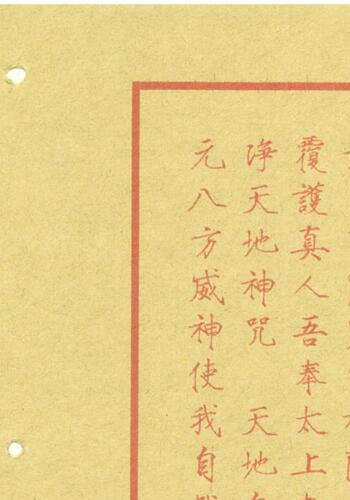 覆護真人吾奉太上
淨天地神咒　天地
元八方威神使我自